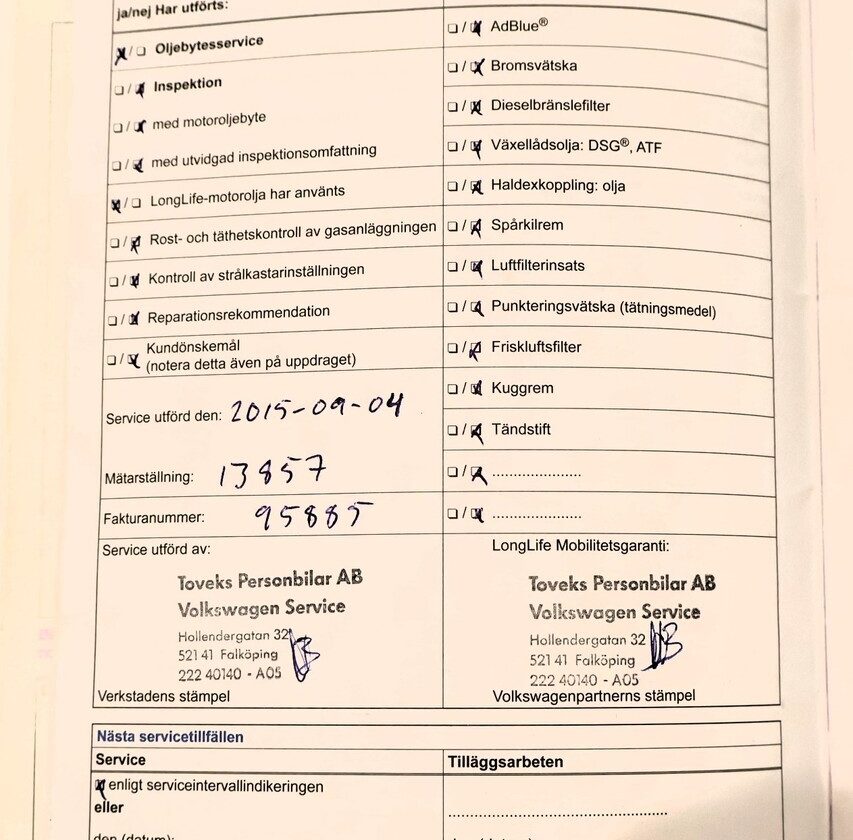 ja/nej Har utförts:
☒/☐ Oljebytesservice
☐/☒ Inspektion
☐/☒ med motoroljebyte
☐/☒ med utvidgad inspektionsomfattning
☒/☐ LongLife-motorolja har använts
☐/☒ Rost- och täthetskontroll av gasanläggningen
☐/☒ Kontroll av strålkastarinställningen
☐/☒ Reparationsrekommendation
☐/☒ Kundönskemål
(notera detta även på uppdraget)
Service utförd den: 2015-09-04
Mätarställning: 13857
Fakturanummer: 95885
☐/☒ AdBlue®
☐/☒ Bromsvätska
☐/☒ Dieselbränslefilter
☐/☒ Växellådsolja: DSG®, ATF
☐/☒ Haldexkoppling: olja
☐/☒ Spårkilrem
☐/☒ Luftfilterinsats
☐/☒ Punkteringsvätska (tätningsmedel)
☐/☒ Friskluftsfilter
☐/☒ Kuggrem
☐/☒ Tändstift
☐/☒ .....................
☐/☒ .....................
Service utförd av:
Toveks Personbilar AB
Volkswagen Service
Hollendergatan 32
521 41 Falköping
222 40140 - A05
Verkstadens stämpel
LongLife Mobilitetsgaranti:
Toveks Personbilar AB
Volkswagen Service
Hollendergatan 32
521 41 Falköping
222 40140 - A05
Volkswagenpartnerns stämpel
Nästa servicetillfällen
Service
☒ enligt serviceintervallindikeringen
eller
den (datum):
Tilläggsarbeten